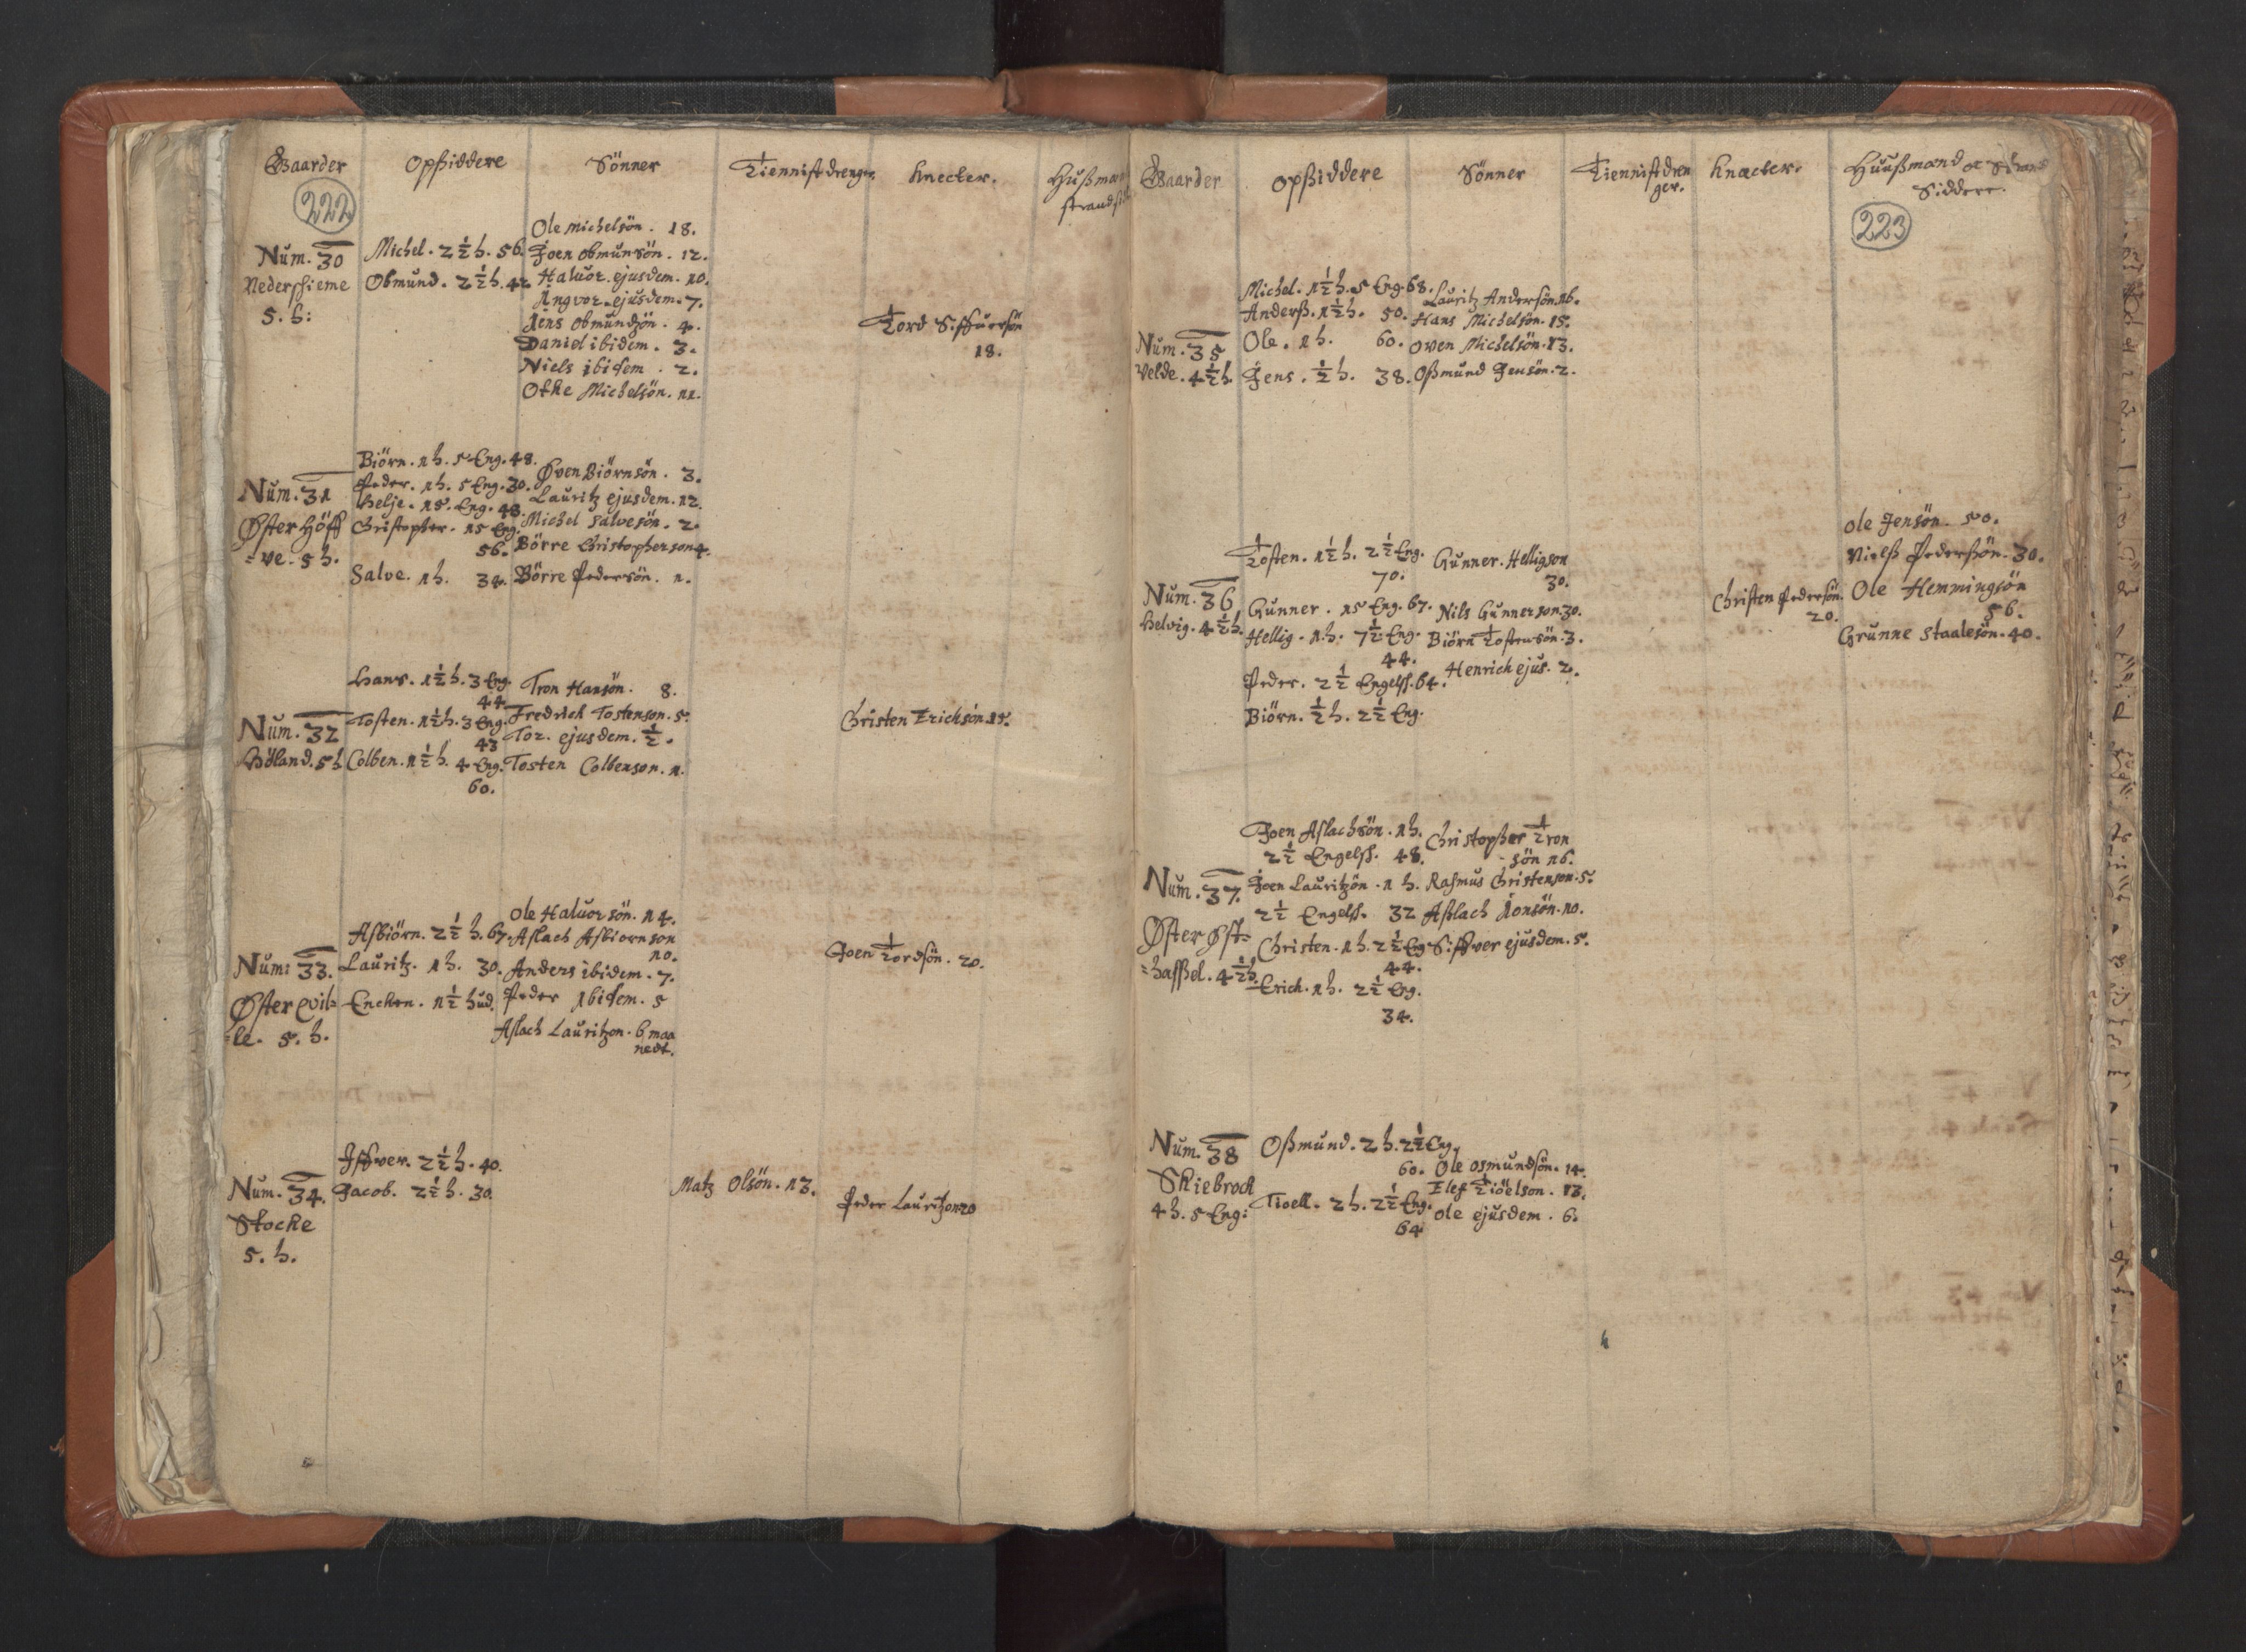 Gaarder
Opsiddere
Sönner
Tiennistdrenger
Knecter.
222
Num. 30
Nederhieme
5. h:
Michel. 2½ h. 56.
Obmund. 2½ h. 42
Ole Michelsön. 18.
Joen Obmunsön. 12.
Haluor ejusdem. 10.
Angvor ejusdem. 7.
Jens Obmundsön. 4.
Daniel ibidem. 3.
Niels ibidem. 2.
Othe Michelsön. 11.
Tord Siffuersön
18.
Num. 31
Øster Höff
=ve. 5 h.
Biörn. 1 h. 5 Eng. 48.
Peder. 1 h. 5 Eng. 30.
Helje. 15. Eng. 48.
Christopher. 15 Eng.
56.
Salve. 1 h. 34.
Øven Biörnsön. 3.
Lauritz ejusdem. 12.
Michel Salvesön. 2.
Börre Christopherson 4.
Börre Pedersön. 1.
Num. 32
Höland. 5 h
Hans. 1½ h. 3 Eng.
44
Tosten. 1½ h. 3 Eng.
43
Colben. 1½ h. 4 Eng.
60.
Tron Hansön. 8.
Fredrich Tostenson. 5.
Tor. ejusdem. ½.
Tosten Colbenson. 1.
Christen Erichsön 15.
Num: 33.
Øster Qvil=
=le. 5. h.
Asbiörn. 2½ h. 67.
Lauritz. 1 h. 30.
Enchen. 1½ hud.
Ole Haluorsön. 14.
Aslach Asbiornson
10.
Anders ibidem. 7.
Peder ibidem. 5
Aslach Lauritzon. 6 maa
nedt.
Joen Tordsön. 20.
Num. 34.
Stocke
5. h.
Iffver. 2½ h. 40.
Jacob. 2½ h. 30.
Matz Olsön. 13.
Peder Lauritzon 20
Gaarder
Opsiddere
Sönner
Tiennistdren
ger.
Knæcter.
Huußmænd oc Strand
Siddere.
223
Num. 35
Velde. 4½ h.
Michel. 1½ h. 5 Eng. 68.
Anderß. 1½ h. 50.
Ole. 1 h. 60.
Jens. ½ h. 38.
Lauritz Andersön. 16.
Hans Michelsön. 15.
Oven Michelsön. 13.
Oßmund Jensön. 2.
Num. 36
Helvig. 4½ h.
Tosten. 1½ h. 2½ Eng.
70.
Gunner. 15 Eng. 67.
Hellig. 1 h. 7½ Eng.
44.
Peder. 2½ Engelß. 64.
Biörn. ½ h. 2½ Eng.
Gunner Helligson
30.
Nils Gunnerson 30.
Biörn Tostensön. 3.
Henrich ejus. 2.
Christen Pedersön.
20.
Ole Jensön. 50.
Nielß Pederßön. 30.
Ole Hemmingsön
56.
Grunne Staalesön. 40.
Num. 37.
Øster Øst=
=haßel. 4½ h.
Joen Aslachsön. 1 h.
2½ Engelß. 48.
Joen Lauritzön. 1 h.
2½ Engelß. 32
Christen. 1 h. 2½ Eng
44.
Erich. 1 h. 2½ Eng.
34.
Christopher Tron
sön 16.
Rasmus Christenson. 5.
Aßlach Jonsön. 10.
Siffver ejusdem. 5.
Num. 38
Skiebrock
4 h. 5 Eng:
Oßmund. 2 h. 2½ Eng.
60.
Tioell. 2 h. 2½ Eng.
64
Ole Osmundsön. 14.
Elef Tiöelson. 13.
Ole ejusdem. 6.